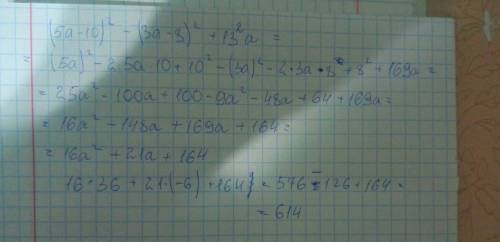 (5a-10)² - (3a-8)² + 13²a =
= (5a)² - 2·5a·10 + 10² - (3a)² - 2·3a·8 + 8² + 169a =
= 25a² - 100a + 100 - 9a² - 48a + 64 + 169a =
= 16a² - 148a + 169a + 164 =
= 16a² + 21a + 164
16·36 + 21·(-6) + 164 = 576 - 126 + 164 =
= 614